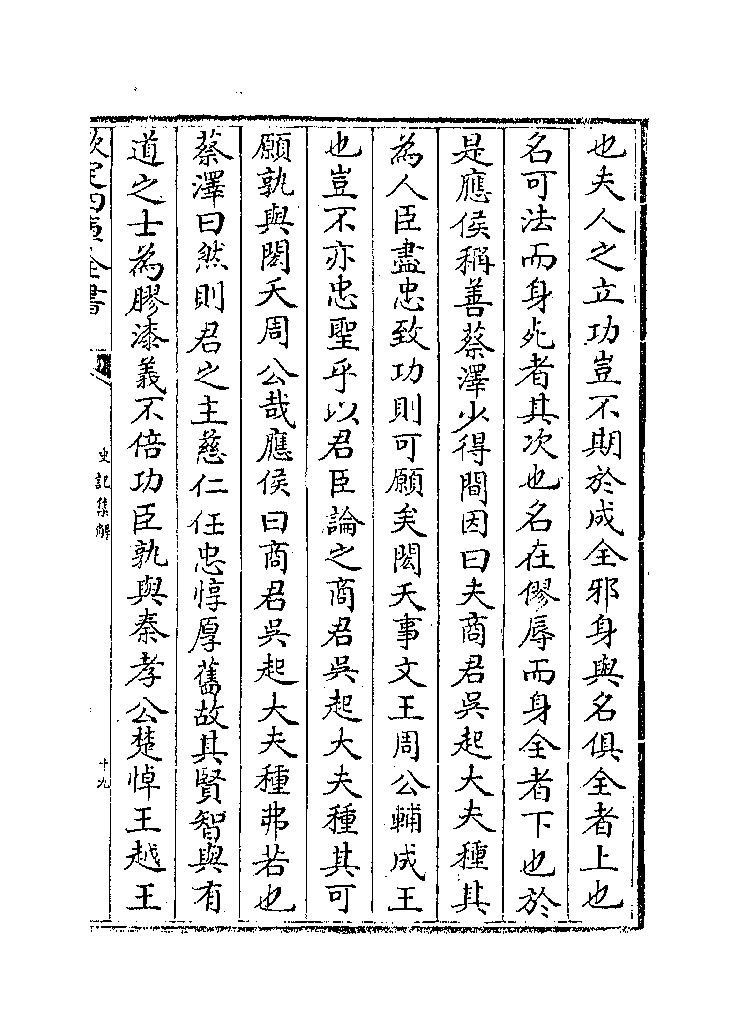 也夫人之立功豈不期於成全邪身與名俱全者上也
名可法而身死者其次也名在僇辱而身全者下也於
是應侯稱善蔡澤少得間因曰夫商君吳起大夫種其
為人臣盡忠致功則可願矣閎夭事文王周公輔成王
也豈不亦忠聖乎以君臣論之商君吳起大夫種其可
願孰與閎夭周公哉應侯曰商君吳起大夫種弗若也
蔡澤曰然則君之主慈仁任忠惇厚舊故其賢智與有
道之士為膠漆義不倍功臣孰與秦孝公楚悼王越王
欽定四庫全書
史記集解
十九